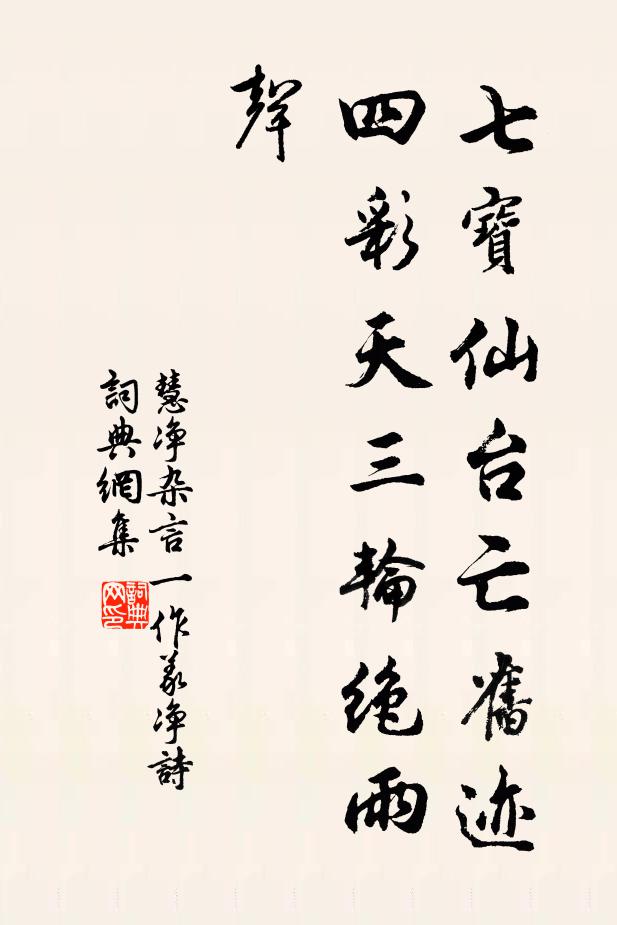 七寶仙台亡舊迹
四彩天三輪绝雨
聲
慧净杂言一作义净詩
詞典網集
詞典网印